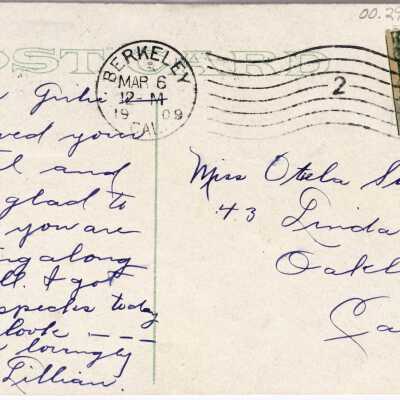 00.29
POST CARD
BERKELEY
MAR 6
12-M
1909
CAL.
2
ved your
and
glad to
you are
ng along
ll. I got
specks today
look ----
lovingly
Lillian.
Miss Otela
43 Linda
Oakl
Ca